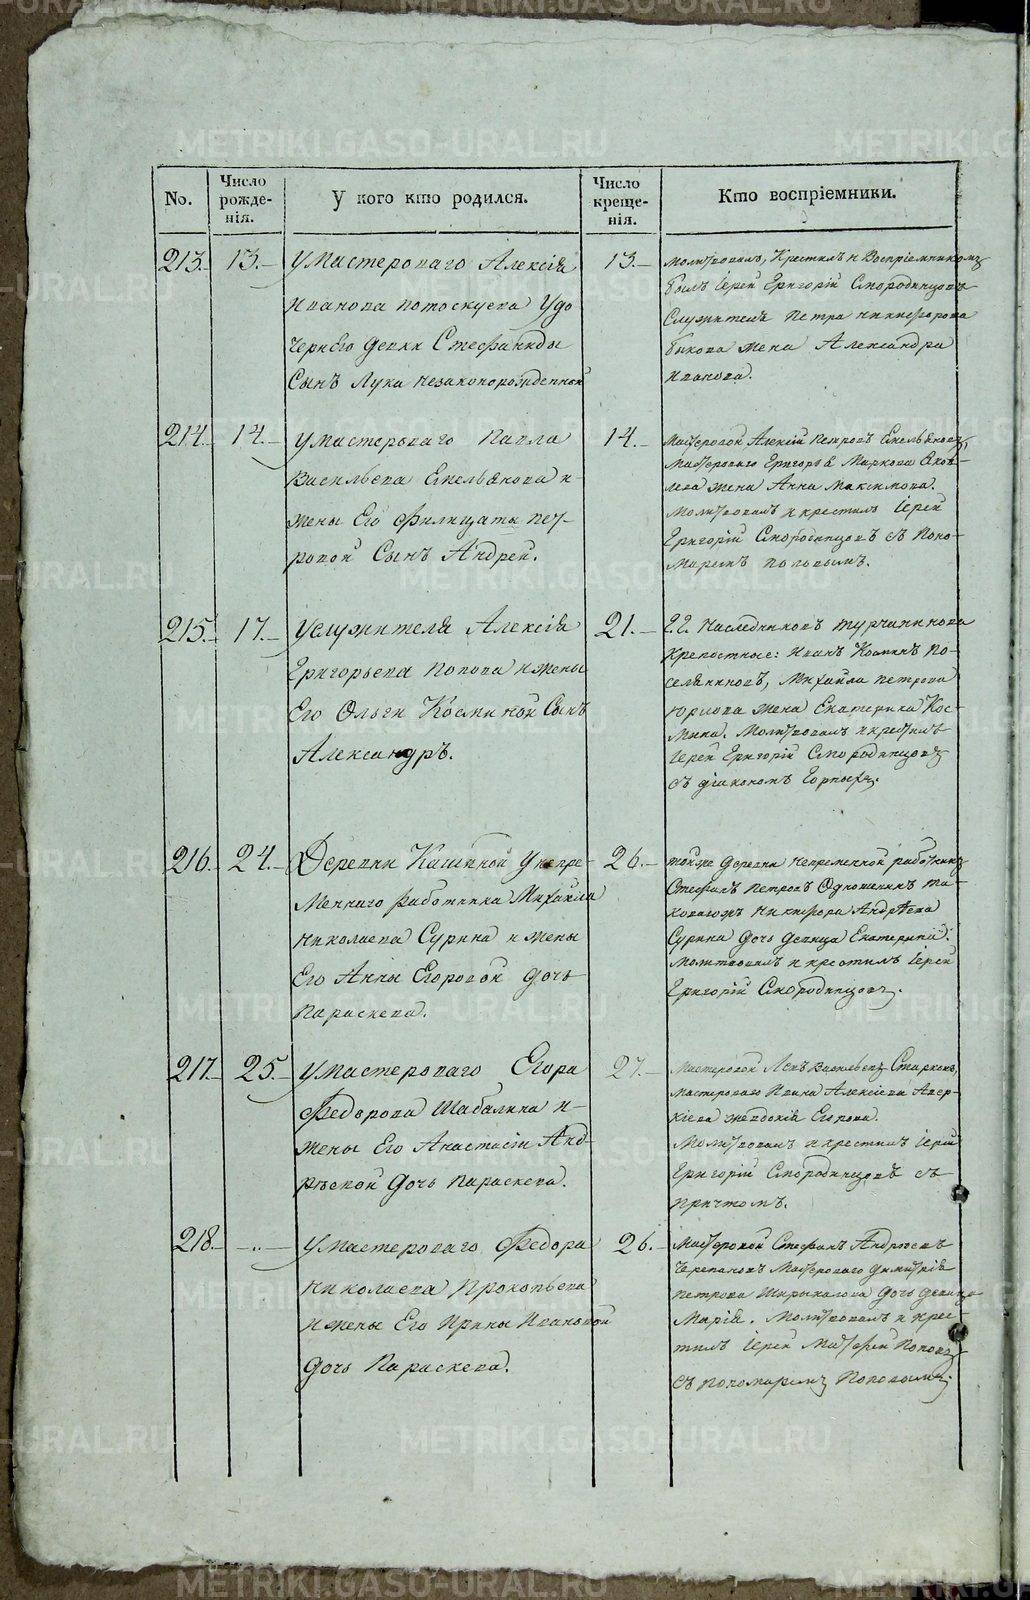 No.
Число рожде- нія.
У кого кто родился.
Число креще- нія.
Кто воспріемники.
213.
13.
У Мастероваго Алексія
Иванова Потоскуева Удо
черньго девки Стефаниды
Сынъ Лука незаконорожденный
13.
Молитвовалъ, Крестилъ и Воспріемникомъ
былъ Іерей Григорій Смородинцовъ
Служителя Петра Никифорова
Быкова жена Александра
Иванова.
214.
14.
У Мастероваго Павла
Васильева Емельянова и
жены Его Филицаты пет-
ровой Сынъ Андрей.
14.
Мастеровой Алексій Петровъ Емельяновъ,
Мастероваго Григорья Маркова
жена Анна Максимова.
Молитвовалъ и крестилъ Іерей
Григорій Смородинцовъ съ Поно-
маремъ Поповымъ.
215.
17.
У Служителя Алексія
Григорьева Попова и жены
Его Ольги Косминой Сынъ
Александръ.
21.
Г.Г. Наследниковъ Турчанинова
Крепостные: Иванъ Косминъ По-
селянновъ, Михайла Петрова
Юрлова жена Екатерина Кос-
мина. Молитвовалъ и крестилъ
Іерей Григорій Смородинцовъ
съ діакономъ Горныхъ.
216.
24.
Деревни Кашиной у непре-
меннаго работника Михайла
Николаева Сурина и жены
Его Анны Егоровой дочь
Параскева.
26.
тойже деревни непременной работникъ
Стефанъ Петровъ Одношеинъ та-
коваго жъ Никифора Андрѣева
Сурина дочь девица Екатерина.
Молитвовалъ и крестилъ Іерей
Григорій Смородинцовъ.
217.
25.
У Мастероваго Егора
Федорова Шабалина и
жены Его Анастасіи Анд-
рѣевой дочь Параскева.
27.
Мастеровой Левъ Васильевъ Старковъ,
мастероваго Ивана Алексіева Авер-
кіева Егорова.
Молитвовалъ и крестилъ Іерей
Григорій Смородинцовъ съ
причтомъ.
218.
-..-
У Мастероваго Федора
Николаева Прокопьева
и жены Его Ирины Ивановой
дочь Параскева.
26.
Мастеровой Стефанъ Андреевъ
Черепановъ Мастероваго Димитрія
Петрова Ширыкалова дочь девица
Марія. Молитвовалъ и крес-
тилъ Іерей Матфей Поповъ
съ пономаремъ Поповымъ.
METRIKI.GASO-URAL.RU